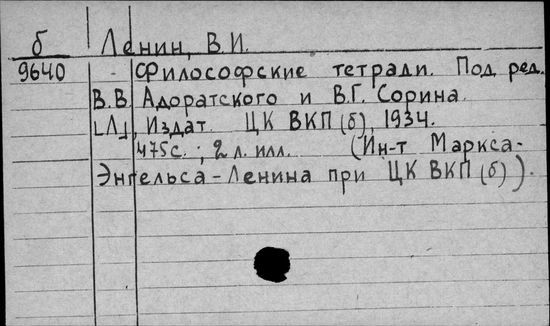 б Ленин, В.И.
9640 - Философские тетради. Под ред.
В.В. Адоратского и В.Г. Сорина.
[Л], Издат. ЦК ВКП(б), 1934.
475с.; 2 л. илл. (Ин-т Маркса-
Энгельса-Ленина при ЦК ВКП(б)).